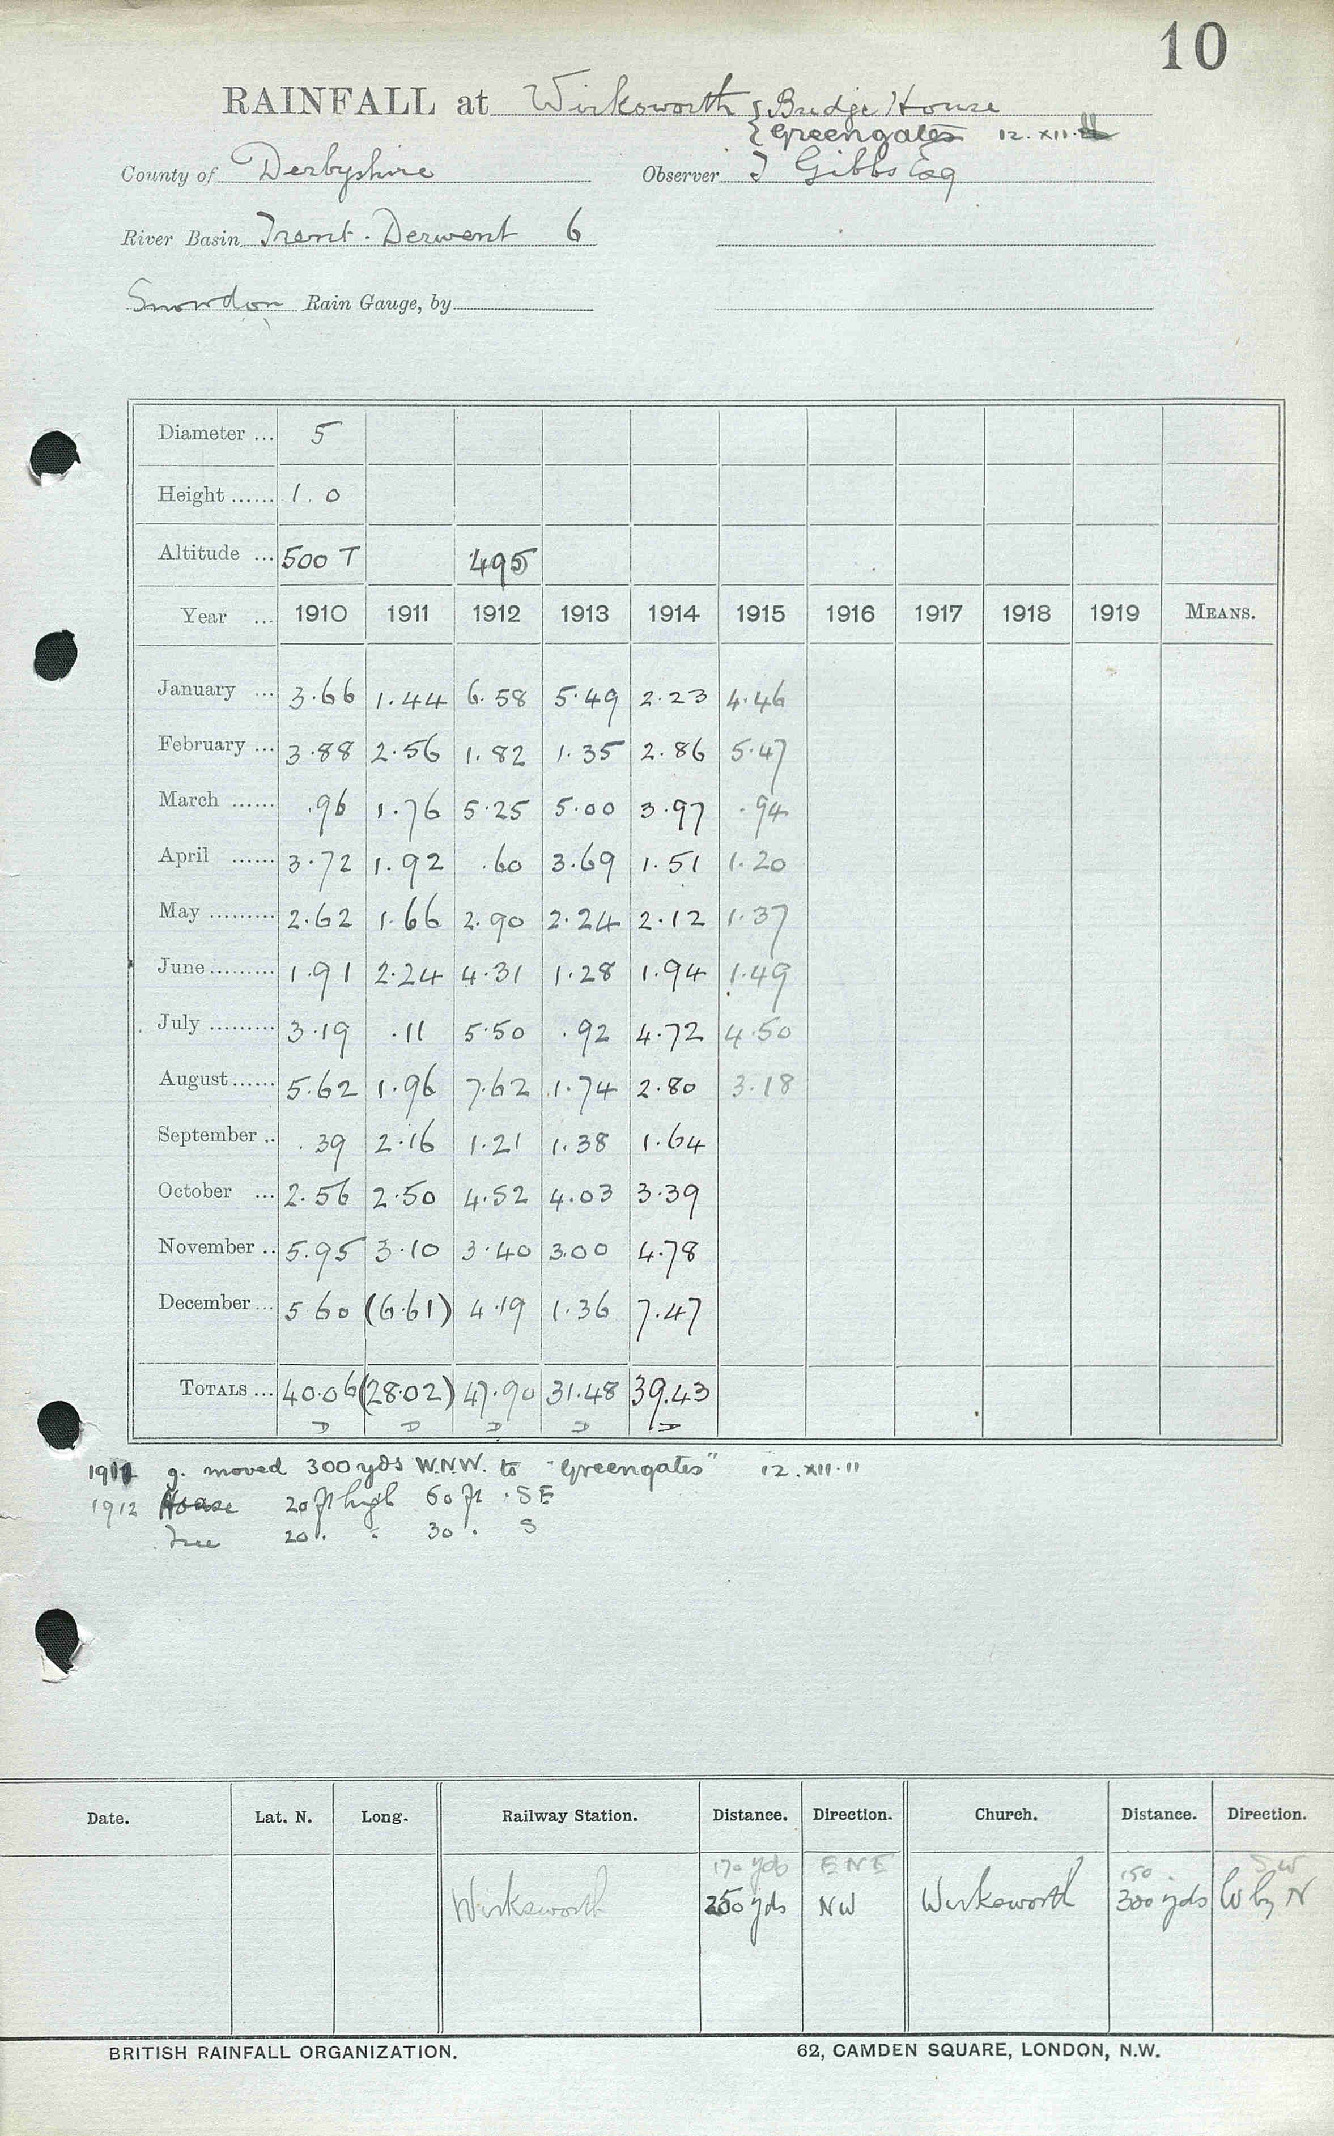 10
RAINFALL at Wirksworth { Bridge House
{ Greengates 12.XII.11
County of Derbyshire Observer T Gibbs Esq
River Basin Trent. Derwent 6
Snowdon Rain Gauge, by
Diameter ... 5
Height ...... 1.0
Altitude ... 500 T 495
Year ... 1910 1911 1912 1913 1914 1915 1916 1917 1918 1919 MEANS.
January ... 3.66 1.44 6.58 5.49 2.23 4.46
February ... 3.88 2.56 1.82 1.35 2.86 5.47
March ...... .96 1.76 5.25 5.00 3.97 .94
April ...... 3.72 1.92 .60 3.69 1.51 1.20
May ......... 2.62 1.66 2.90 2.24 2.12 1.37
June ......... 1.91 2.24 4.31 1.28 1.94 1.49
July ......... 3.19 .11 5.50 .92 4.72 4.50
August ...... 5.62 1.96 7.62 1.74 2.80 3.18
September .. .39 2.16 1.21 1.38 1.64
October ... 2.56 2.50 4.52 4.03 3.39
November .. 5.95 3.10 3.40 3.00 4.78
December ... 5 60 (6.61) 4.19 1.36 7.47
TOTALS ... 40.06 (28.02) 47.90 31.48 39.43
D D D D D
1911 g. moved 300 yds W.N.W. to "Greengates" 12.XII.11
1912 House 20 ft high 60 ft . SE
Tree 20 . " 30 . S
Date. Lat. N. Long. Railway Station. Distance. Direction. Church. Distance. Direction.
170 yds ENE 150 SW
Wirksworth 250 yds NW Wirksworth 300 yds W by N
BRITISH RAINFALL ORGANIZATION. 62, CAMDEN SQUARE, LONDON, N.W.